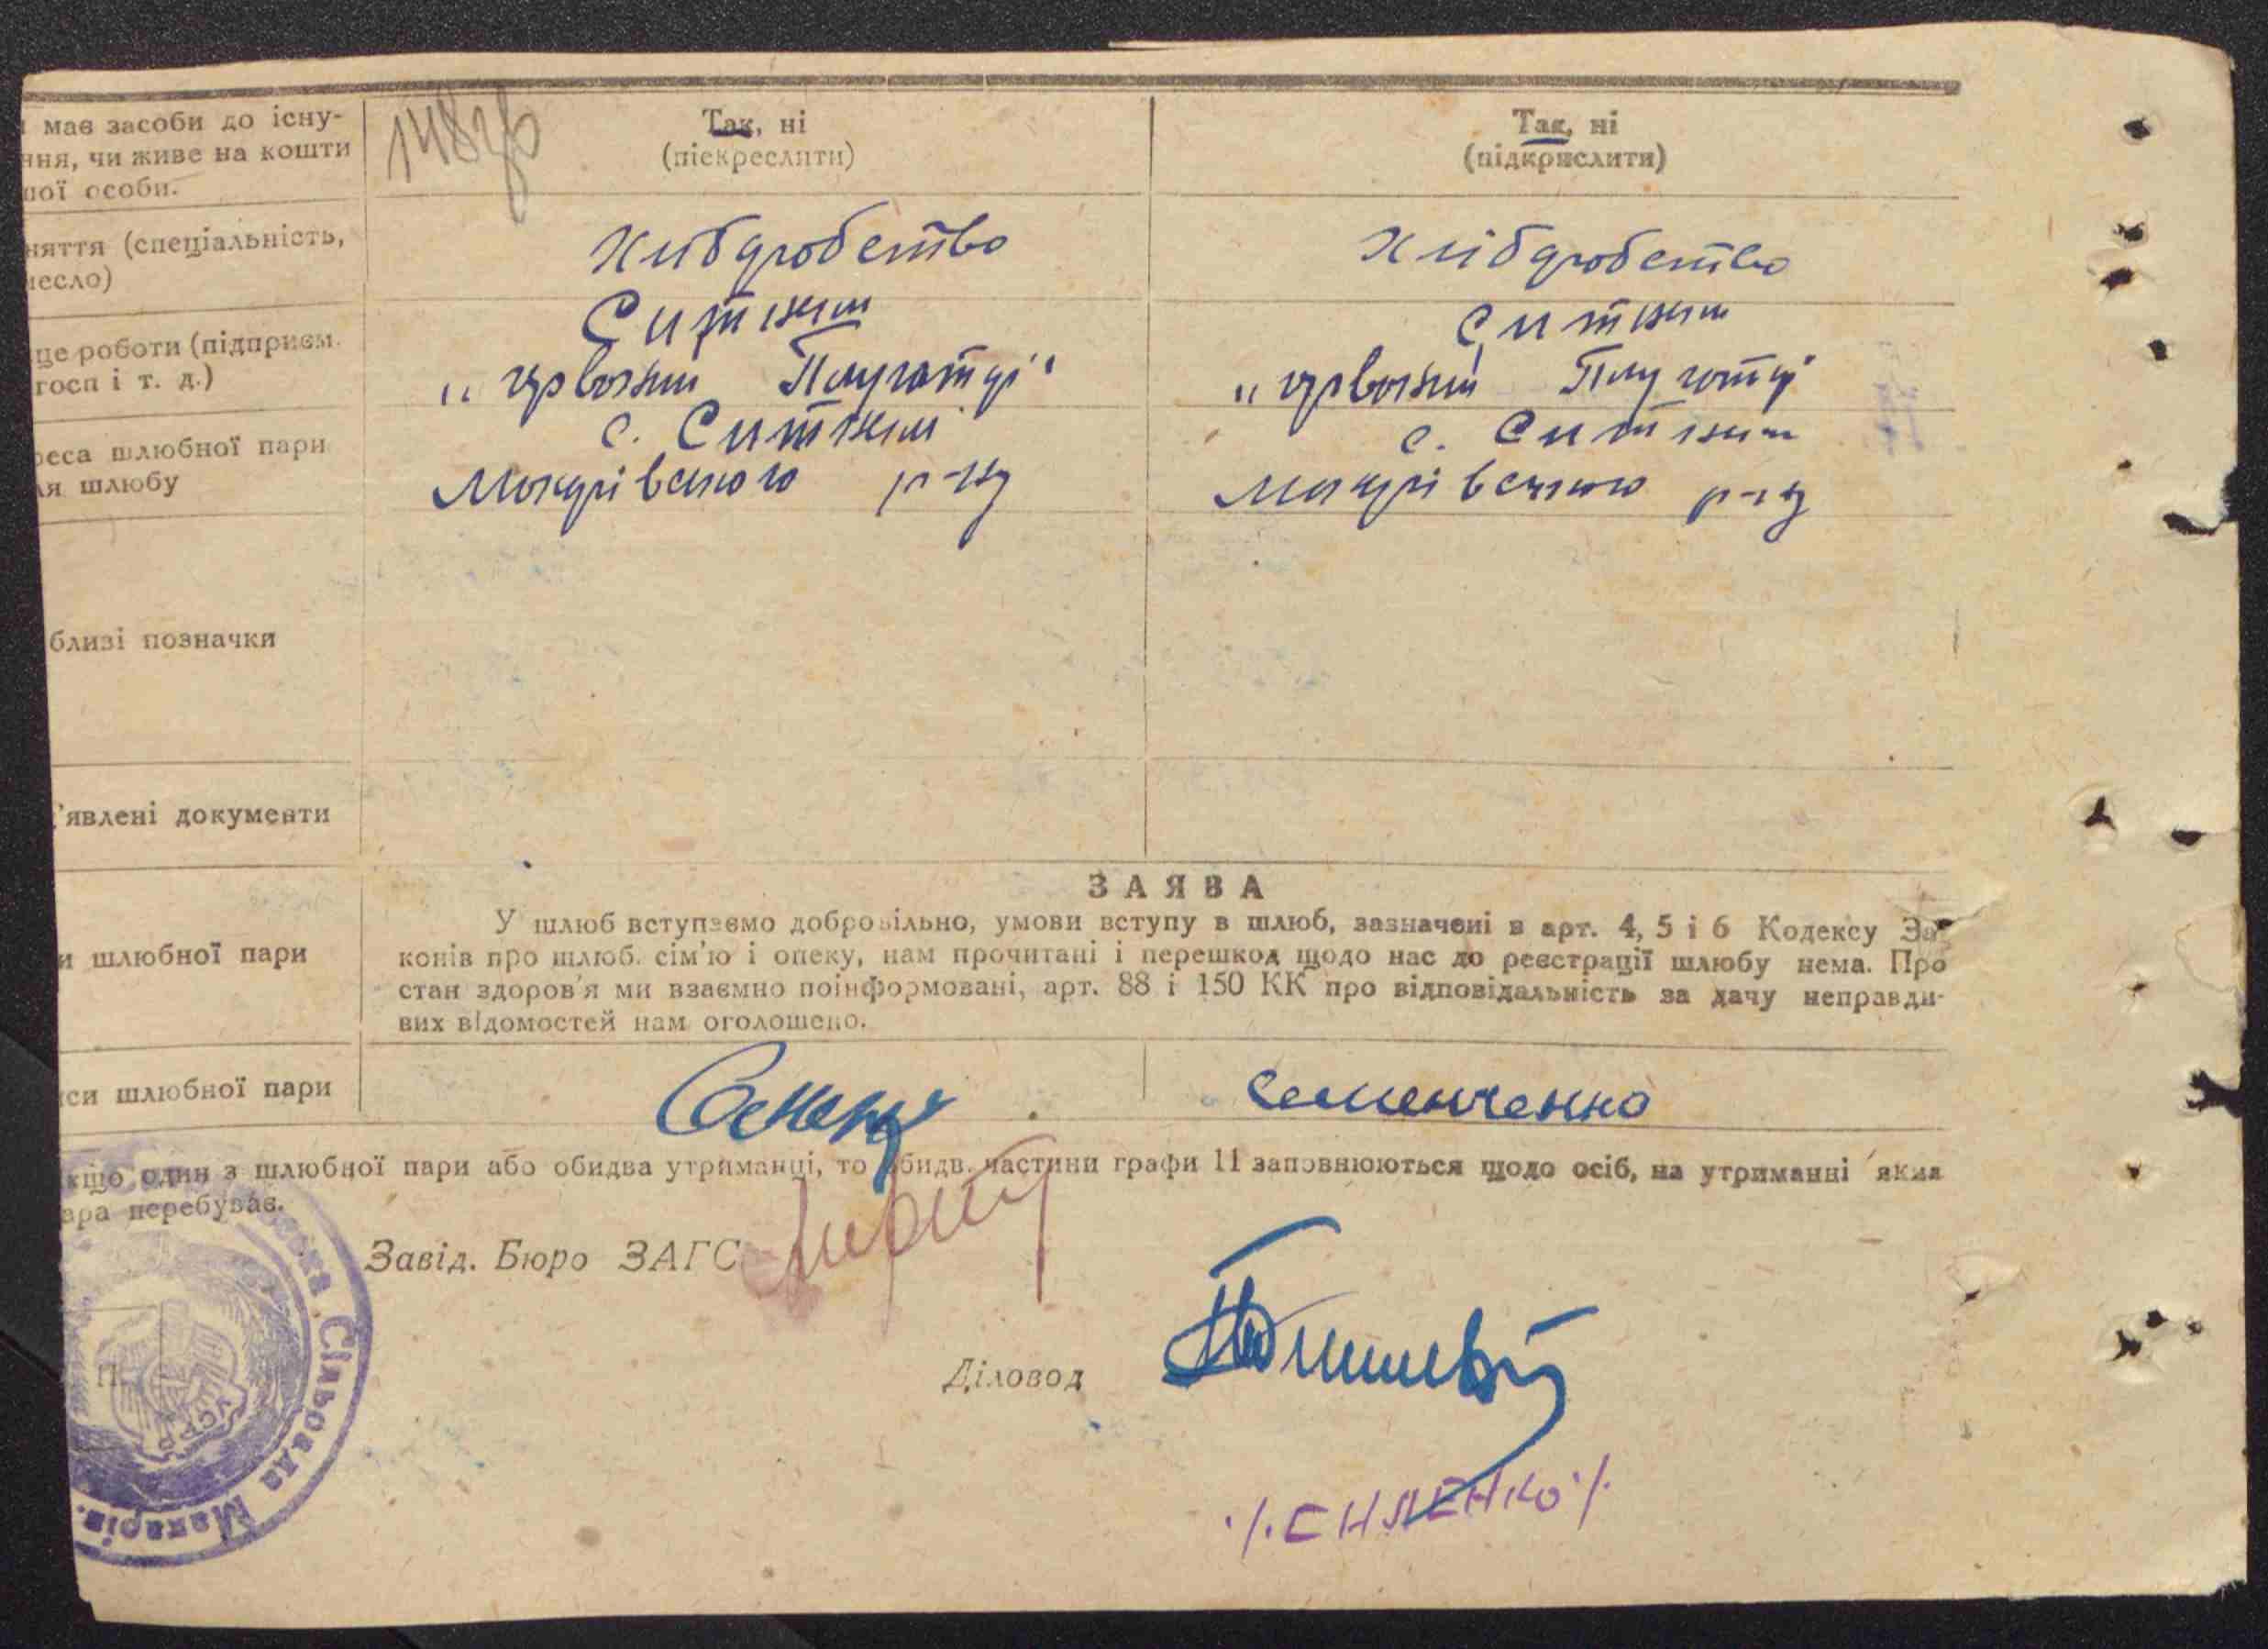 має засоби до існу-
ння, чи живе на кошти
шої особи.
148зв
Так, ні
(піекреслити)
Так, ні
(підкрислити)
няття (спеціальність,
месло)
Хлібдробство
Хлібдробство
це роботи (підприєм.
госп і т. д.)
Ситники
„червоний Плугатар“
Ситники
„червоний Плугатар
реса шлюбної пари
ля шлюбу
с. Ситники
Макарівського р-ну
с. Ситники
Макарівського р-ну
близі позначки
'явлені документи
ЗАЯВА
и шлюбної пари
У шлюб вступаємо добровільно, умови вступу в шлюб, зазначені в арт. 4, 5 і 6 Кодексу За-
конів про шлюб. сім'ю і опеку, нам прочитані і перешкод щодо нас до реєстрації шлюбу нема. Про
стан здоров'я ми взаємно поінформовані, арт. 88 і 150 КК про відповідальність за дачу неправди-
вих відомостей нам оголошено.
си шлюбної пари
Семенченко
кщо один з шлюбної пари або обидва утриманці, то обидв. частини графи 11 заповнюються щодо осіб, на утриманні яких
ара перебуває.
Завід. Бюро ЗАГС
Діловод
Сільрада Макарів.
УСРР
П.